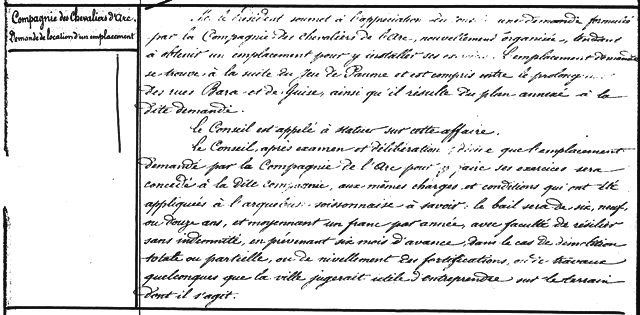 Compagnie des Chevaliers d'Arc.
Demande de location d'un emplacement
M. le Président soumet à l'appréciation du une demande formulée
par la Compagnie des Chevaliers de l'Arc, nouvellement organisée, tendant
à obtenir un emplacement pour y installer ses L'emplacement demandé
se trouve à la suite du Jeu de Paume et est compris entre le prolong
des rues Bara et de Guise, ainsi qu'il résulte du plan annexé à la
dite demande.
Le Conseil est appelé à statuer sur cette affaire.
Le Conseil, après examen et délibération, décide que l'emplacement
demandé par la Compagnie de l'Arc pour y faire ses exercices sera
concédé à la dite compagnie, aux mêmes charges et conditions qui ont été
appliquées à l'arquebuse soissonnaise à savoir: le bail sera de six, neuf,
ou douze ans, et moyennant un franc par année, avec faculté de résilier
sans indemnité, en prévenant six mois d'avance, dans le cas de démolition
totale ou partielle, ou de nivellement des fortifications, ou de travaux
quelconques que la ville jugerait utile d'entreprendre sur le terrain
dont il s'agit.